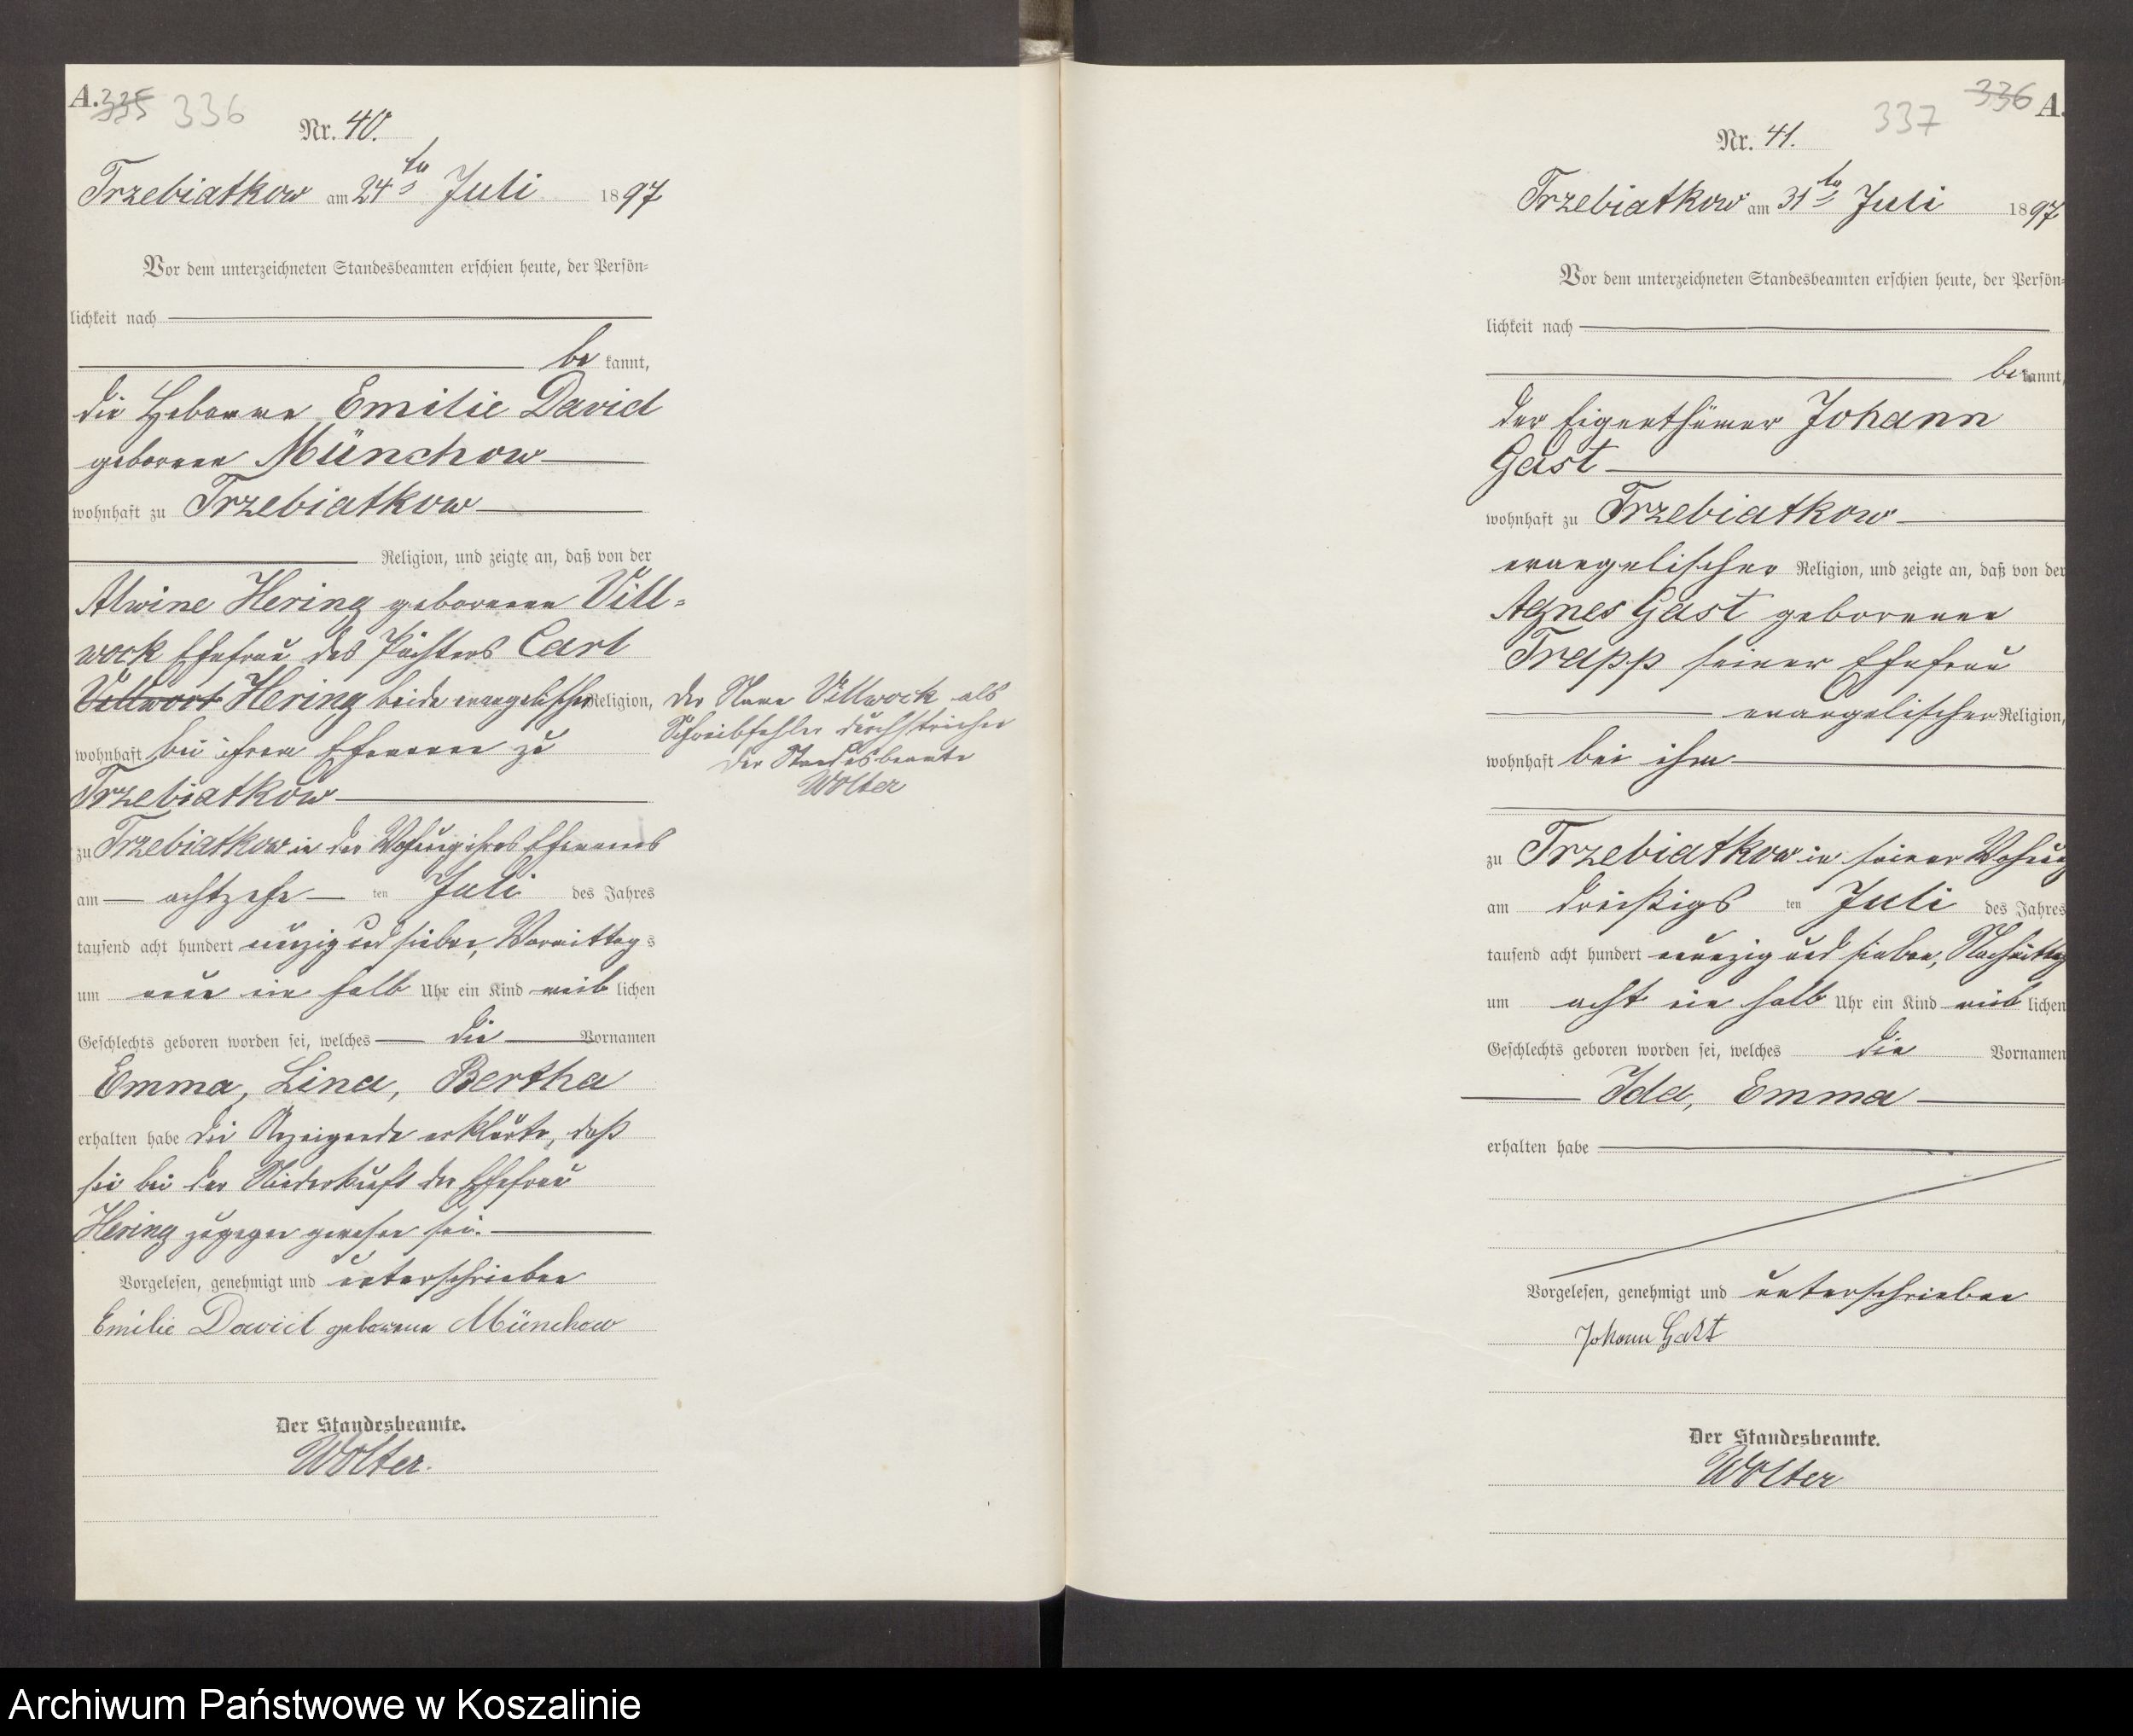 A. 335 336
Nr. 40.
Trzebiatkow am 24ten Juli 1897
Vor dem unterzeichneten Standesbeamten erschien heute, der Persön-
lichkeit nach
be kannt,
die Hebamme Emilie David
geborene Münchow
wohnhaft zu Trzebiatkow
Religion, und zeigte an, daß von der
Alwine Hering geborenen Vill-
wock Ehefrau des Pächters Carl
Villwock Hering beide evangelischer Religion,
wohnhaft bei ihrem Ehemanne zu
Trzebiatkow
zu Trzebiatkow in der Wohnung ihres Ehemannes
am achtzehn ten Juli des Jahres
tausend acht hundert neunzig und sieben, Vormittags
um neun ein halb Uhr ein Kind weib lichen
Geschlechts geboren worden sei, welches die Vornamen
Emma, Lina, Bertha
erhalten habe die Anzeigende erklärte, daß
sie bei der Niederkunft der Ehefrau
Hering zugegen gewesen sei.
Vorgelesen, genehmigt und unterschrieben
Emilie David geborene Münchow
Der Standesbeamte.
Wolter.
Der Name Villwock als
Schreibfehler durchstrichen
Der Standesbeamte
Wolter
337 336 A.
Nr. 41.
Trzebiatkow am 31ten Juli 1897
Vor dem unterzeichneten Standesbeamten erschien heute, der Persön-
lichkeit nach
be kannt,
der Eigenthümer Johann
Gast
wohnhaft zu Trzebiatkow
evangelischer Religion, und zeigte an, daß von der
Agnes Gast geborenen
Trapp seiner Ehefrau
evangelischer Religion,
wohnhaft bei ihm
zu Trzebiatkow in seiner Wohnung
am dreißigs ten Juli des Jahres
tausend acht hundert neunzig und sieben, Nachmittag
um acht ein halb Uhr ein Kind weib lichen
Geschlechts geboren worden sei, welches die Vornamen
Ida, Emma
erhalten habe
Vorgelesen, genehmigt und unterschrieben
Johann Gast
Der Standesbeamte.
Wolter
Archiwum Państwowe w Koszalinie